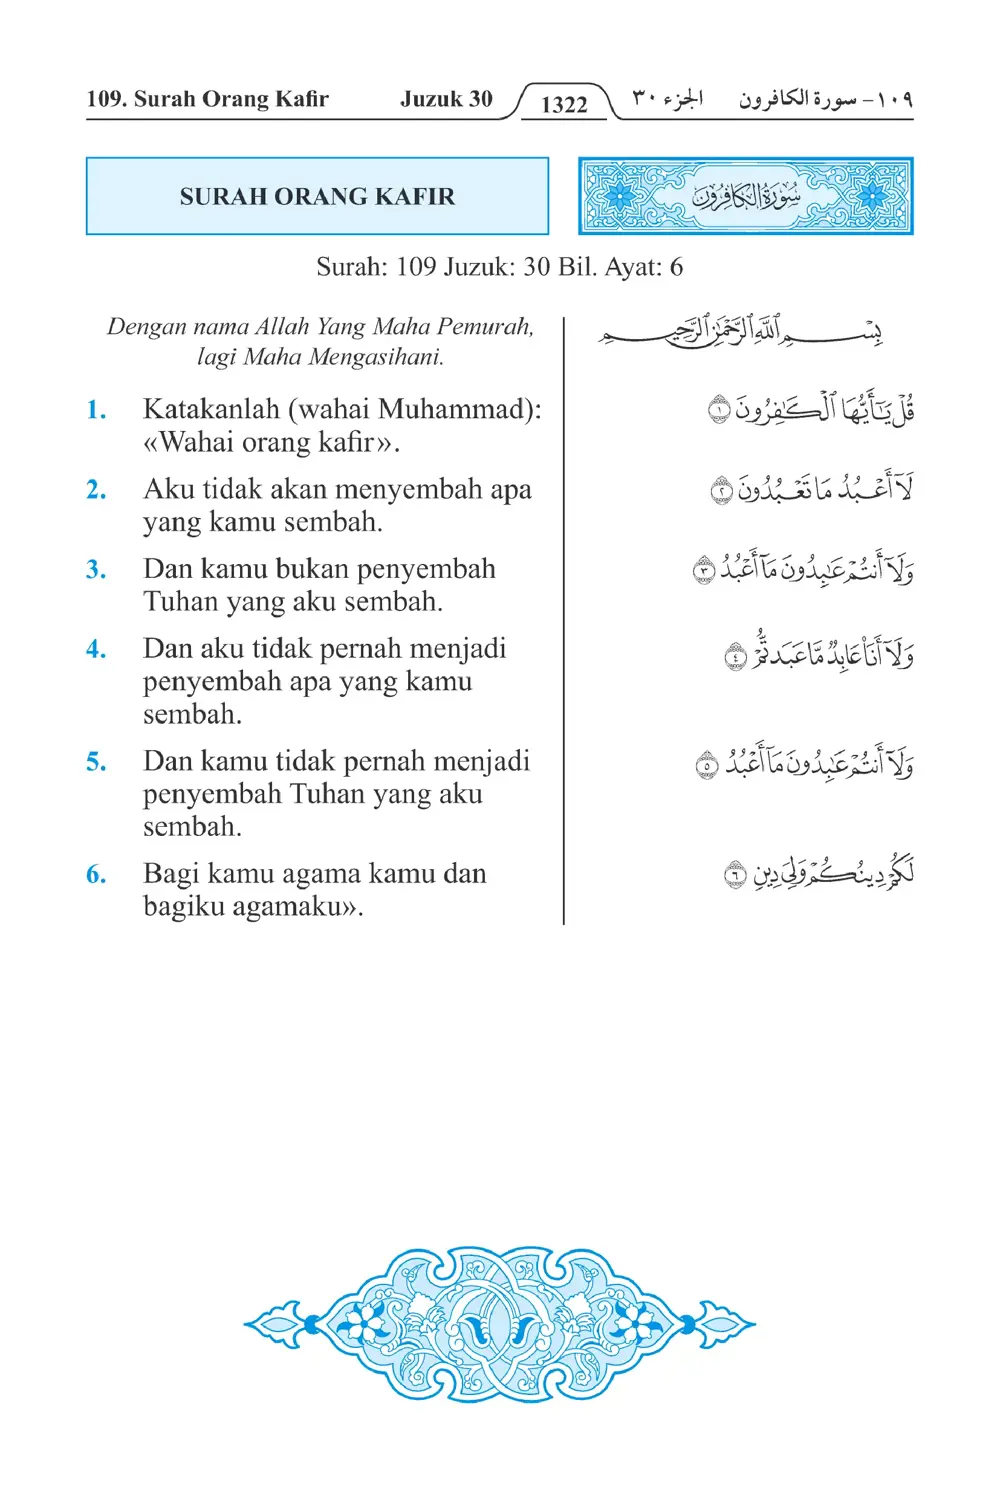 109. Surah Orang Kafir Juzuk 30 1322 الجزء ٣٠ ١٠٩- سورة الكافرون
SURAH ORANG KAFIR
سُورَةُ الكَافِرُون
Surah: 109 Juzuk: 30 Bil. Ayat: 6
Dengan nama Allah Yang Maha Pemurah,
lagi Maha Mengasihani.
1. Katakanlah (wahai Muhammad):
«Wahai orang kafir».
2. Aku tidak akan menyembah apa
yang kamu sembah.
3. Dan kamu bukan penyembah
Tuhan yang aku sembah.
4. Dan aku tidak pernah menjadi
penyembah apa yang kamu
sembah.
5. Dan kamu tidak pernah menjadi
penyembah Tuhan yang aku
sembah.
6. Bagi kamu agama kamu dan
bagiku agamaku».
بِسْمِ ٱللَّهِ ٱلرَّحْمَٰنِ ٱلرَّحِيمِ
قُلْ يَٰٓأَيُّهَا ٱلْكَٰفِرُونَ ١
لَآ أَعْبُدُ مَا تَعْبُدُونَ ٢
وَلَآ أَنتُمْ عَٰبِدُونَ مَآ أَعْبُدُ ٣
وَلَآ أَنَا۠ عَابِدٌ مَّا عَبَدتُّمْ ٤
وَلَآ أَنتُمْ عَٰبِدُونَ مَآ أَعْبُدُ ٥
لَكُمْ دِينُكُمْ وَلِىَ دِينِ ٦